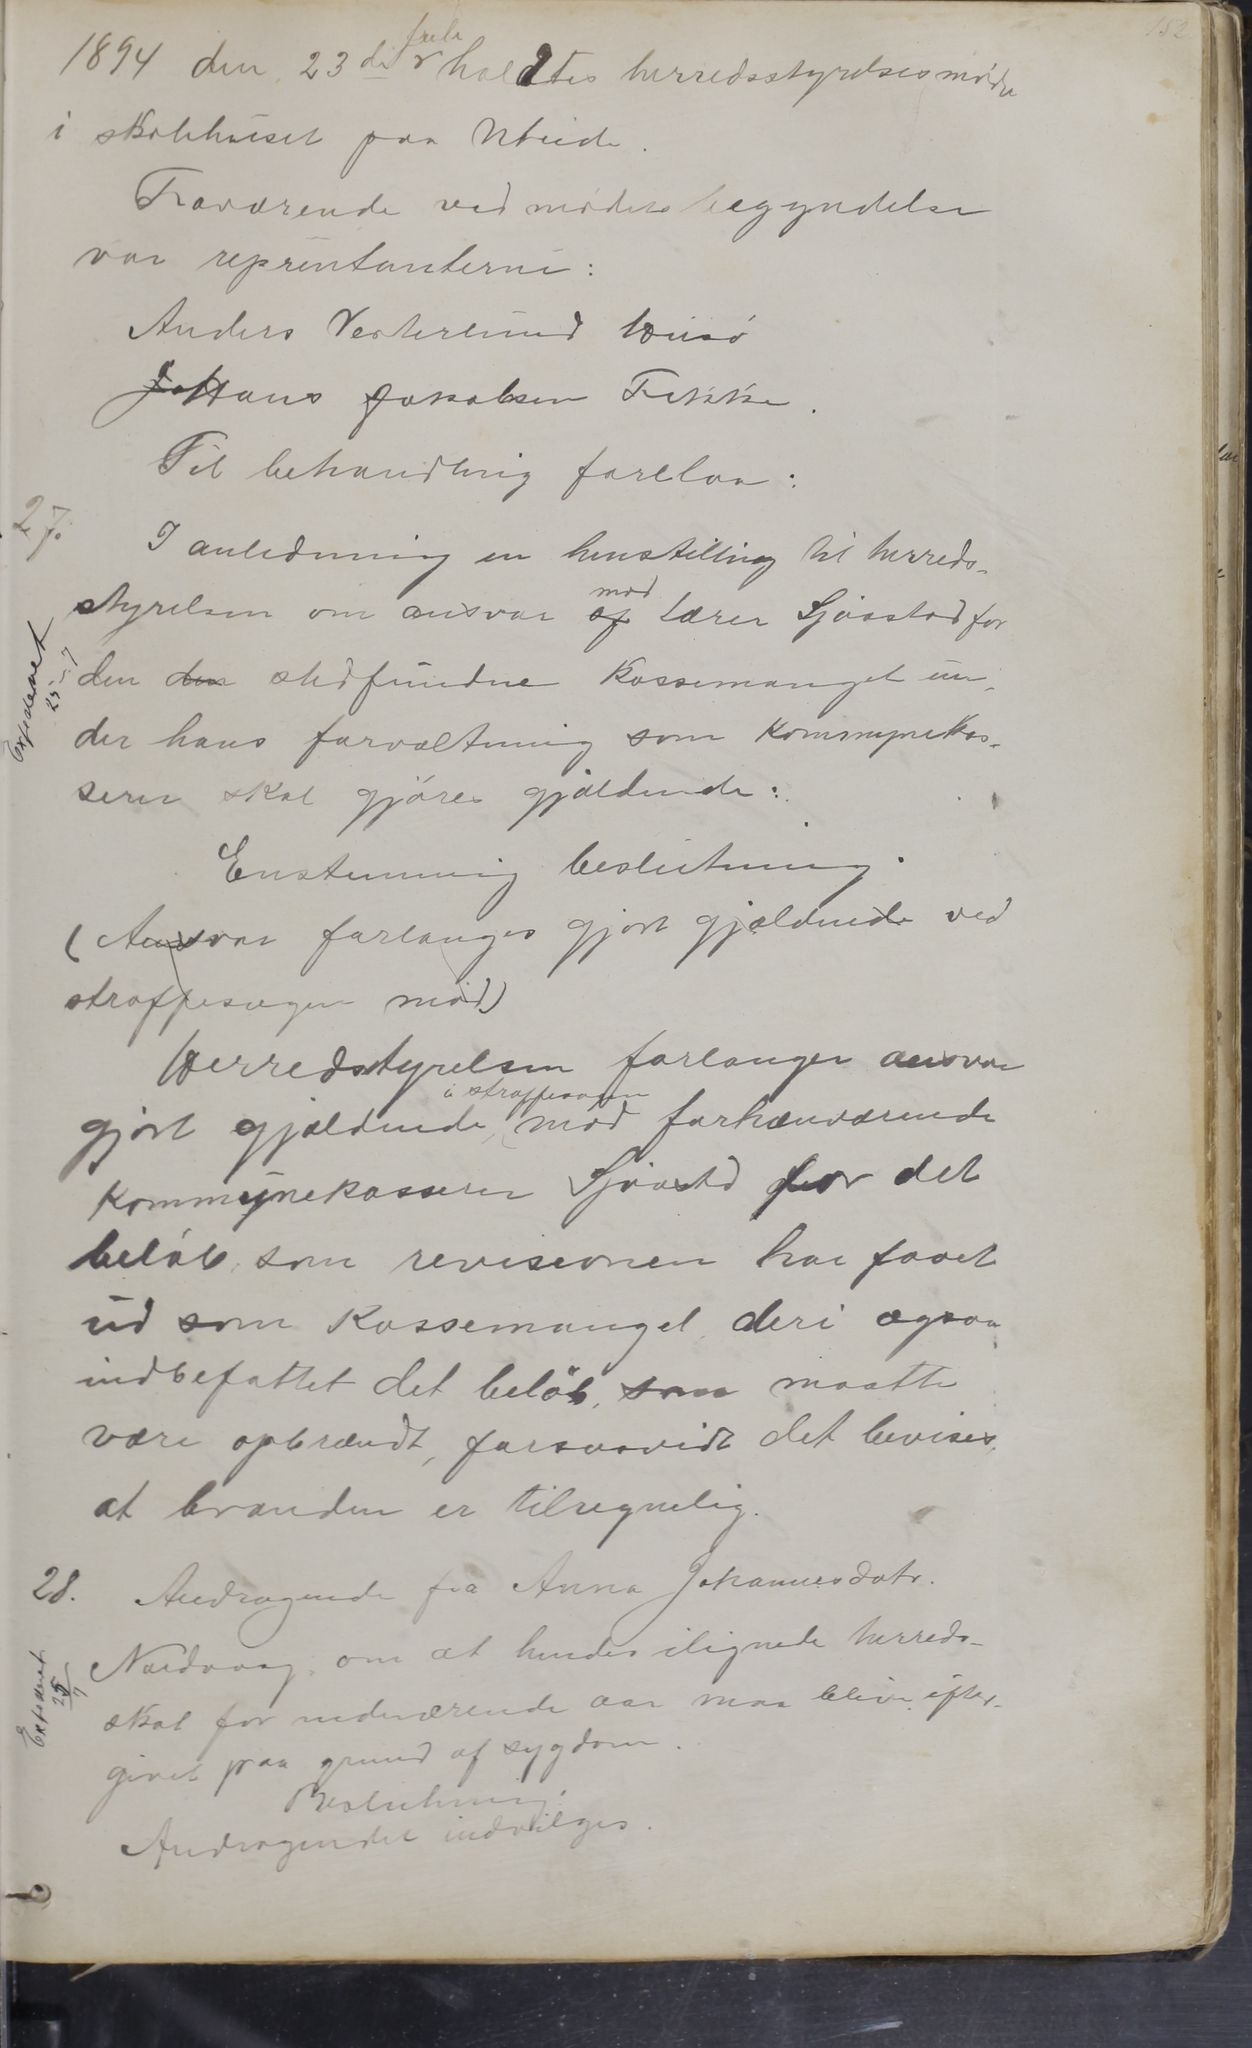 152
1894 den 23de holdtes herredsstyrelsesmøde
i skolehuset paa
Fraværende ved mødets begyndelse
var reprintanterne:
Anders Vesterlund
Hans Jakobsen Fikke.
Til behandling forelaa:
27.
I anledning en henstilling til herreds-
styrelsen om ansvar mod lærer Sjåstad for
den den stedfundne Kassemangel un-
der hans forvaltning som Kommunekas-
serer skal gjøres gjældende:
Expederet 25/7
Enstemmig beslutning.
(Ansvar forlanges gjort gjældende ved
straffesagen mod)
Herredsstyrelsen forlanger ansvar
gjort gjældende i straffesagen mod forhenværende
Kommunekasserer Sjåstd for det
beløb, som revisionen har faaet
ud som Kassemangel, deri ogsaa
indbefattet det beløb, som maatte
være opbrændt, forsaavidt det bevises,
at branden er tilregnelig.
28. Andragende fra Anna Johannesdatr.
Nordvaag, om at hendes ilignede herreds-
skat for nedværende aar maa blive efter-
givet paa grund af sygdom.
Expederet 25/7
Beslutning:
Andragendet indvilges.